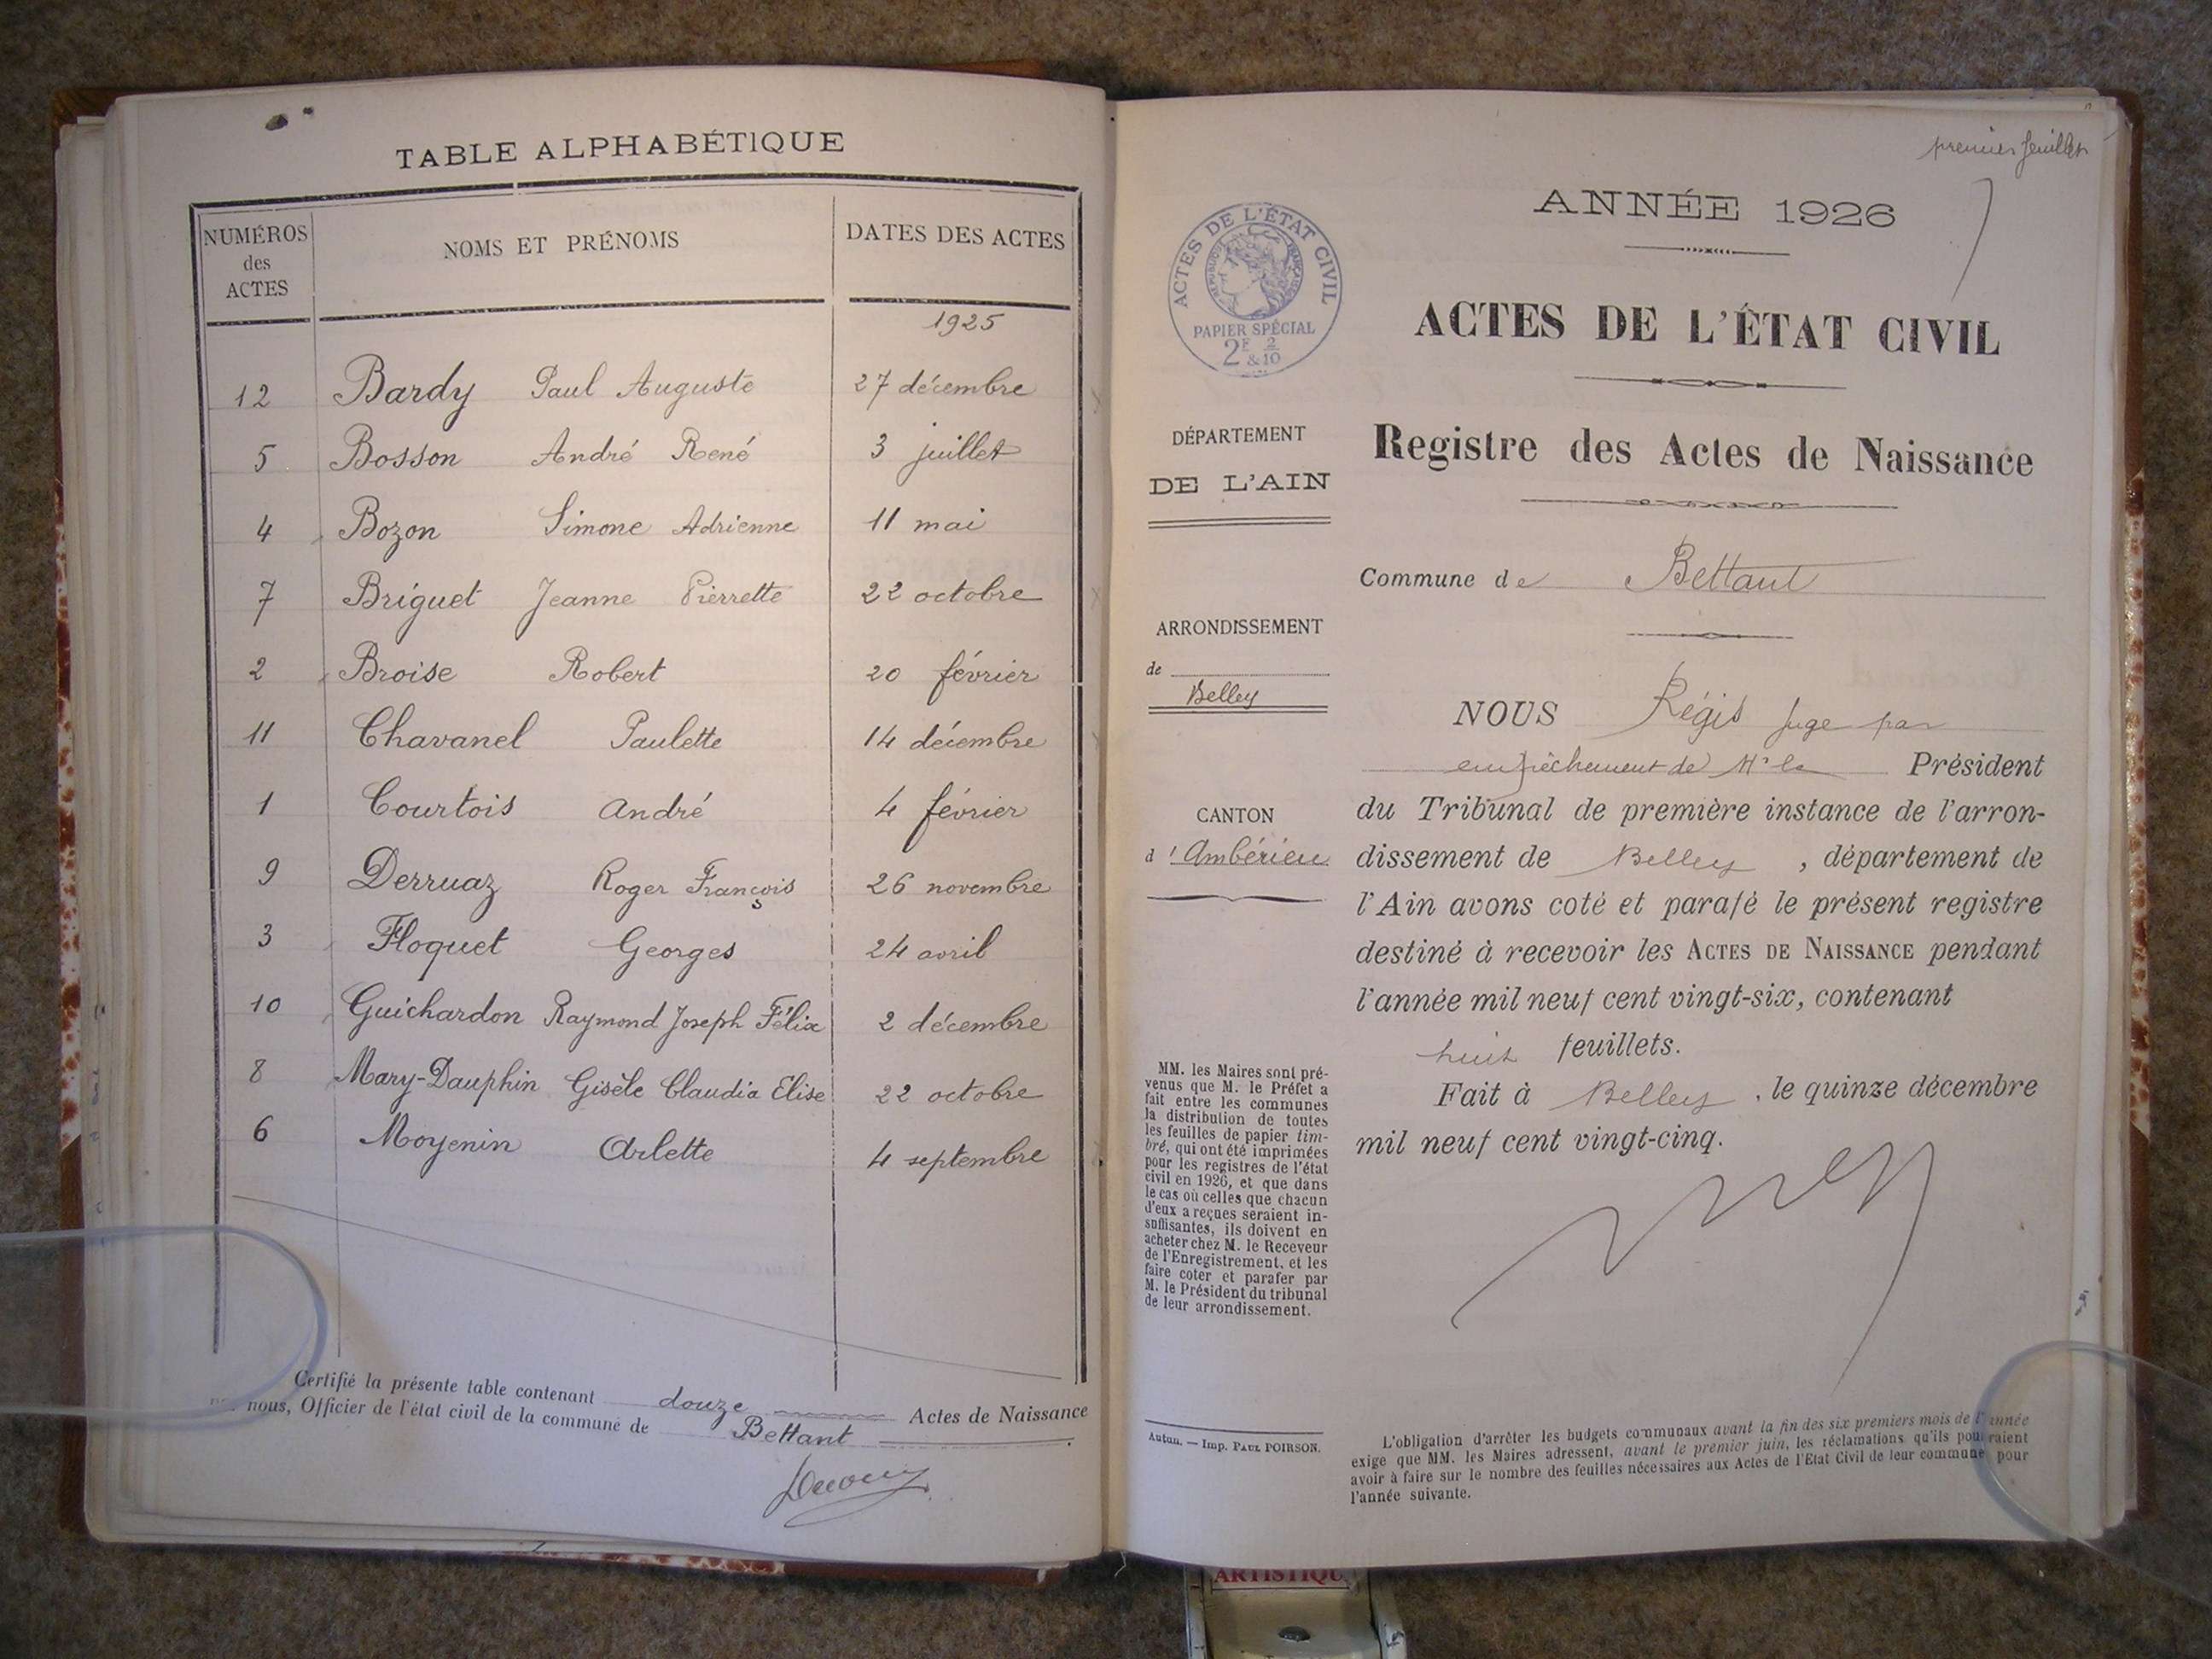 TABLE ALPHABÉTIQUE
NUMÉROS des ACTES
NOMS ET PRÉNOMS
DATES DES ACTES
1925
12 Bardy Paul Auguste 27 décembre
5 Bosson André René 3 juillet
4 Bozon Simone Adrienne 11 mai
7 Briguet Jeanne Pierrette 22 octobre
2 Broise Robert 20 février
11 Chavanel Paulette 14 décembre
1 Courtois André 4 février
9 Derruaz Roger François 26 novembre
3 Floquet Georges 24 avril
10 Guichardon Raymond Joseph Félix 2 décembre
8 Mary-Dauphin Gisèle Claudia Elise 22 octobre
6 Moyenin Arlette 4 septembre
Certifié la présente table contenant douze Actes de Naissance
nous, Officier de l'état civil de la commune de Bettant
premier feuillet
ANNÉE 1926
ACTES DE L'ÉTAT CIVIL
RÉPUBLIQUE FRANÇAISE
PAPIER SPÉCIAL
2F 2
& 10
ACTES DE L'ÉTAT CIVIL
Registre des Actes de Naissance
DÉPARTEMENT
DE L'AIN
ARRONDISSEMENT
de
Belley
CANTON
d'Ambérieu
Commune de Bettant
NOUS Régis Juge par
empêchement de Mr le Président
du Tribunal de première instance de l'arron-
dissement de Belley, département de
l'Ain avons coté et parafé le présent registre
destiné à recevoir les ACTES DE NAISSANCE pendant
l'année mil neuf cent vingt-six, contenant
huit feuillets.
Fait à Belley, le quinze décembre
mil neuf cent vingt-cinq.
MM. les Maires sont pré-
venus que M. le Préfet a
fait entre les communes
la distribution de toutes
les feuilles de papier tim-
bré, qui ont été imprimées
pour les registres de l'état
civil en 1926, et que dans
le cas où celles que chacun
d'eux a reçues seraient in-
suffisantes, ils doivent en
acheter chez M. le Receveur
de l'Enregistrement, et les
faire coter et parafer par
M. le Président du tribunal
de leur arrondissement.
Autun. — Imp. PAUL POIRSON.
L'obligation d'arrêter les budgets communaux avant la fin des six premiers mois de l'année
exige que MM. les Maires adressent, avant le premier juin, les réclamations qu'ils pourraient
avoir à faire sur le nombre des feuilles nécessaires aux Actes de l'Etat Civil de leur commune pour
l'année suivante.
ARTISTIQU